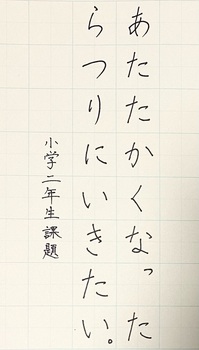 あたたかくなった
らつりにいきたい。
小学二年生課題